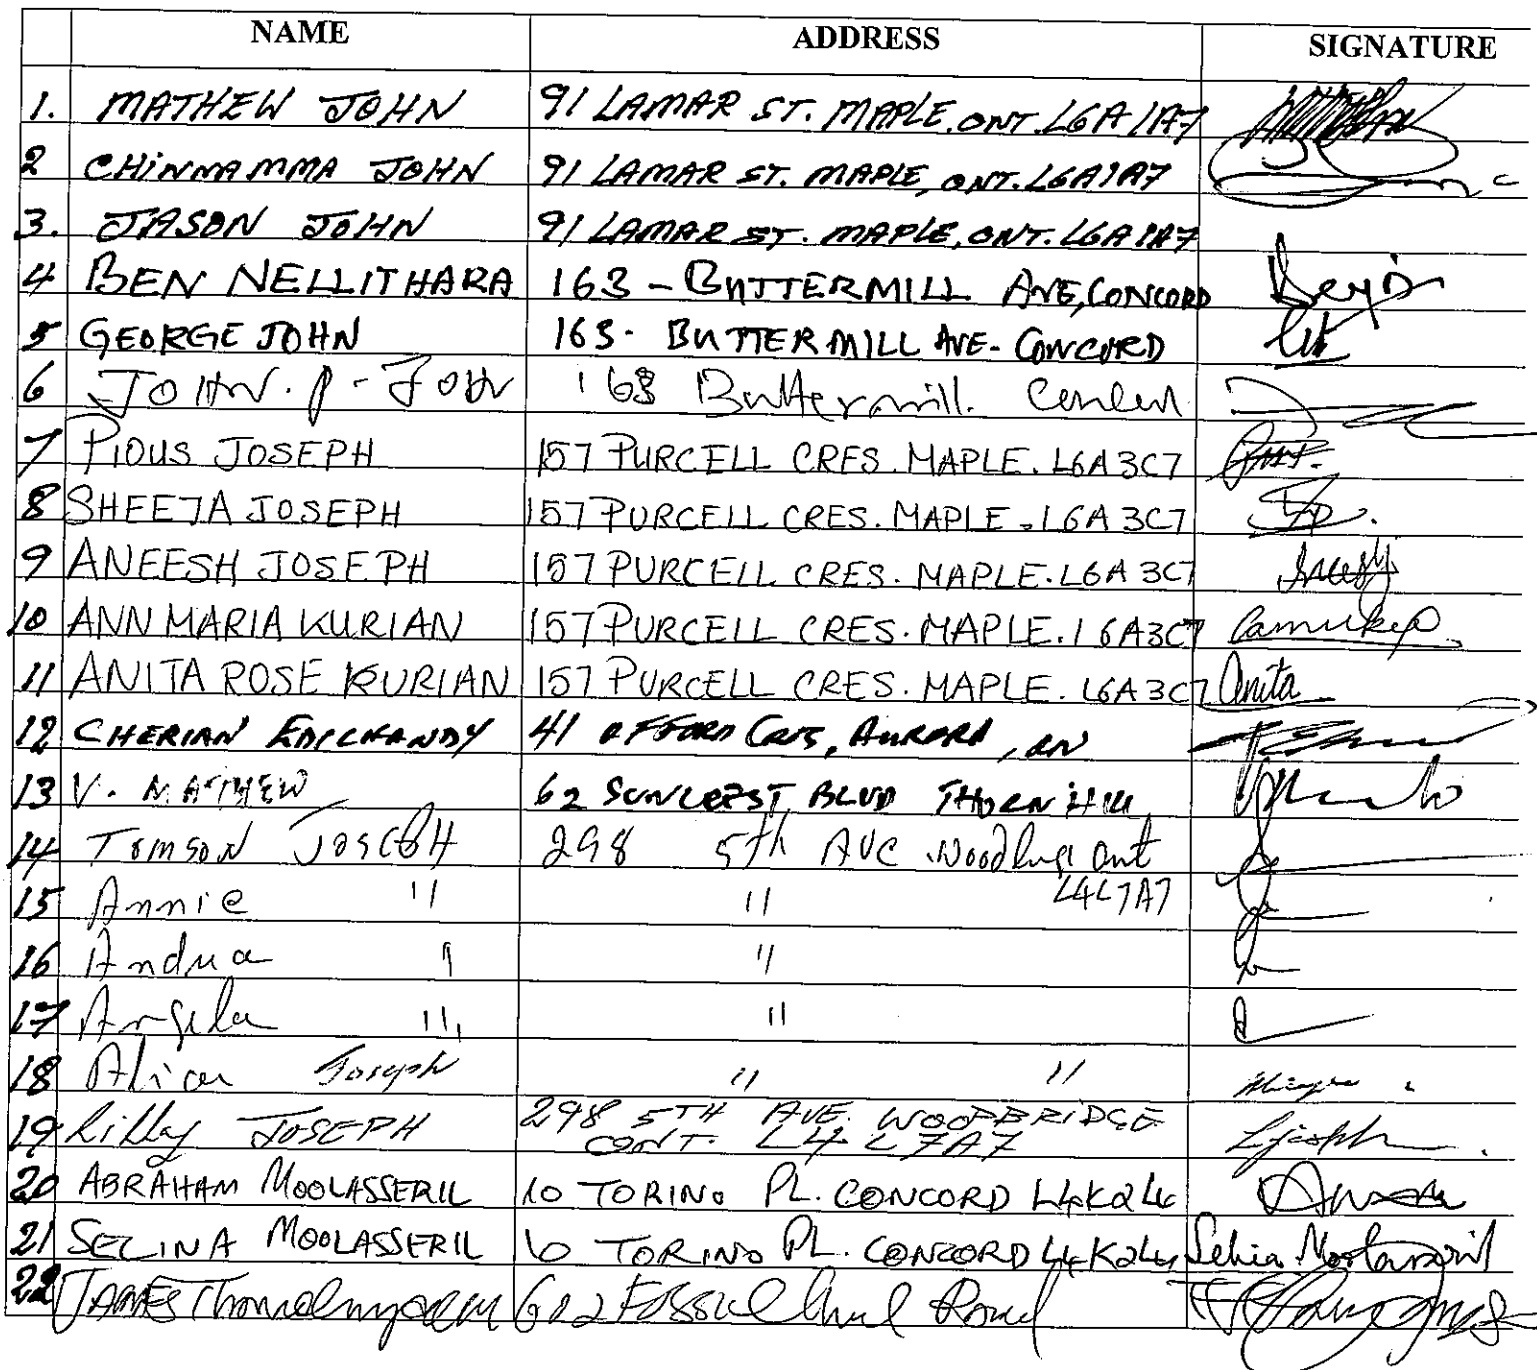 NAME ADDRESS SIGNATURE
1. MATHEW JOHN 91 LAMAR ST. MAPLE, ONT. L6A 1A7
2 CHINNAMMA JOHN 91 LAMAR ST. MAPLE, ONT. L6A1A7
3. JASON JOHN 91 LAMAR ST. MAPLE, ONT. L6A 1A7
4 BEN NELLITHARA 163 - BUTTERMILL AVE, CONCORD
5 GEORGE JOHN 163 - BUTTERMILL AVE - CONCORD
6 JOHN. P - JOHN 163 Buttermill.
7 PIOUS JOSEPH 157 PURCELL CRES. MAPLE. L6A 3C7
8 SHEEJA JOSEPH 157 PURCELL CRES. MAPLE. L6A 3C7
9 ANEESH JOSEPH 157 PURCELL CRES. MAPLE. L6A 3C7
10 ANN MARIA KURIAN 157 PURCELL CRES. MAPLE. L6A3C7
11 ANITA ROSE KURIAN 157 PURCELL CRES. MAPLE. L6A3C7 Anita
12 CHERIAN 41 OFFORD CRES, AURORA, ON
13 V. MATHEW 62 SUNCREST BLVD THORNHILL
14 TOMSON JOSEPH 298 5th AVE. Ont
L4L7A7
15 Annie " "
16 Andrea " "
17 Angela " "
18 Joseph " "
19 Lilly JOSEPH 298 5TH AVE. WOODBRIDGE
ONT. L4L7A7 Ljoseph
20 ABRAHAM MOOLASSERIL 10 TORINO PL. CONCORD L4K2L4
21 SELINA MOOLASSERIL 10 TORINO PL. CONCORD L4K2L4 Selina Moolasseril
22 JAMES 602 Road